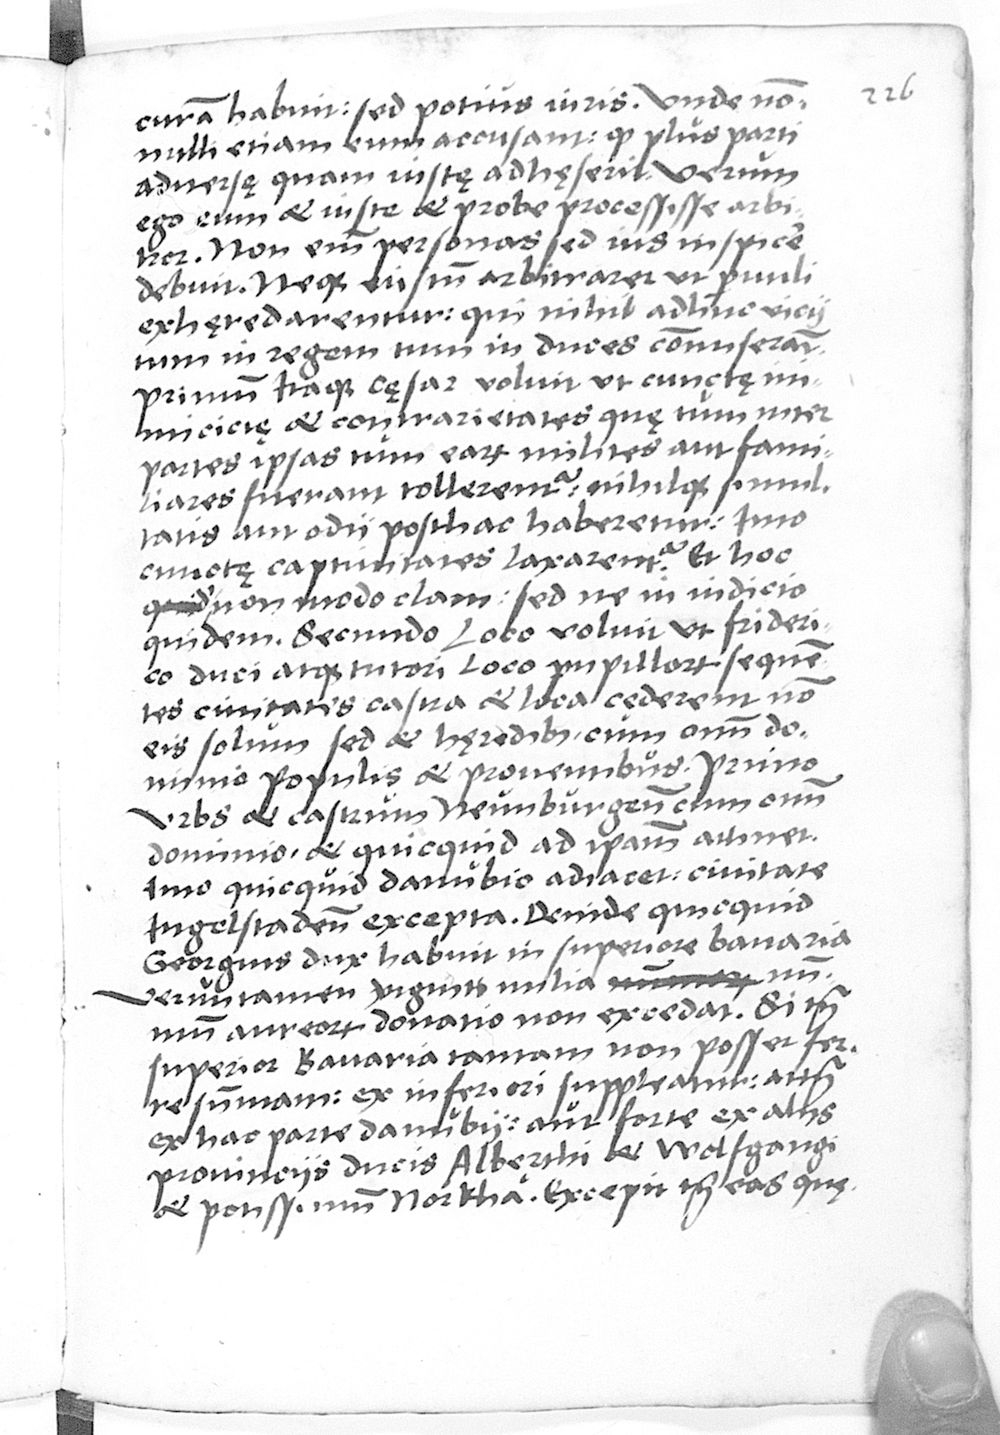 226
curā habuit: sed potius iuris. Vnde nō-
nulli etiam eum accusant: ꝙ plus parti
aduersę quam iustę adhęserit. Verum
ego eum & iuste & probe processisse arbi-
tror. Non em̄ personas sed ius inspicer̄
debuit. Neqꝫ iustū arbitrarer vt pueuli
exhęredarentur: qui nihil adhuc vicij
tum in regem tum in duces cōmiserāt.
Primum̄ Itaqꝫ Cęsar voluit vt cunctę ini-
micicię & contrarietates quę tum inter
partes ipsas tum eaꝝ milites aut fami-
liares fuerant tollerent᷑: nihilqꝫ simul-
tatis aut odij posthac haberetur: Imo
cunctę captiuitates laxarent᷑. Et hoc
non modo clam: sed ne in iudicio
quidem. Secundo Loco voluit vt frideri-
co duci atqꝫ tutori Loco pupilloꝝ sequē-
tes ciuitates castra & loca cęderent nō
eis solum sed & hęredib, cum omī do-
minio Populis & prouentibus. Primo
Vrbs & castrum Neunburgen̄ cum omī
dominio, & quicquid ad ipam̄ attinet.
Imo quicquid danubio adiacet: ciuitate
Ingelstaden̄ excepta. Deinde quicquid
Georgius dux habuit in superiore bauaria
Veruntamen viginti milia nū-
mū aureoꝝ donatio non excedat. Si tn̄
superior Bauaria tantam non posset fer-
re sūmam: ex inferiori suppleatur: attn̄
ex hac parte danubij: aut forte ex alijs
prouincijs ducis Alberthi & Wolfgangi
& potissimū Norkha. Excepit tn̄ eas quę